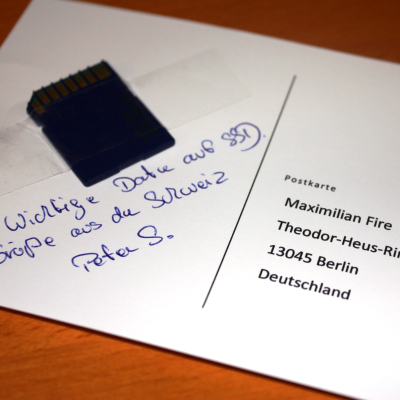 Wichtige Daten auf SSD.
Grüße aus der Schweiz
Peter S.
Postkarte
Maximilian Fire
Theodor-Heus-Rin
13045 Berlin
Deutschland